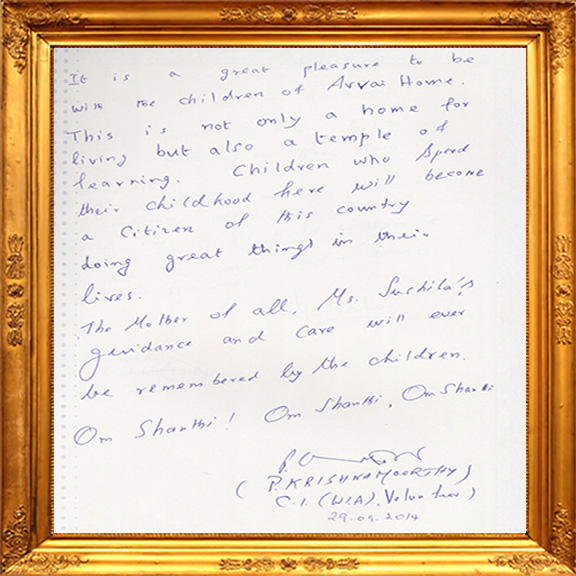 It is a great pleasure to be
with the children of Avvai Home.
This is not only a home for
living but also a temple of
learning. Children who spend
their childhood here will become
a Citizen of this country
doing great things in their
lives.
The Mother of all, Ms. Sushila's
guidance and care will ever
be remembered by the children.
Om Shanthi! Om Shanthi, Om Shanthi
(P. KRISHNAMOORTHY)
C.I. (WIA). Volunteer)
29.09.2014